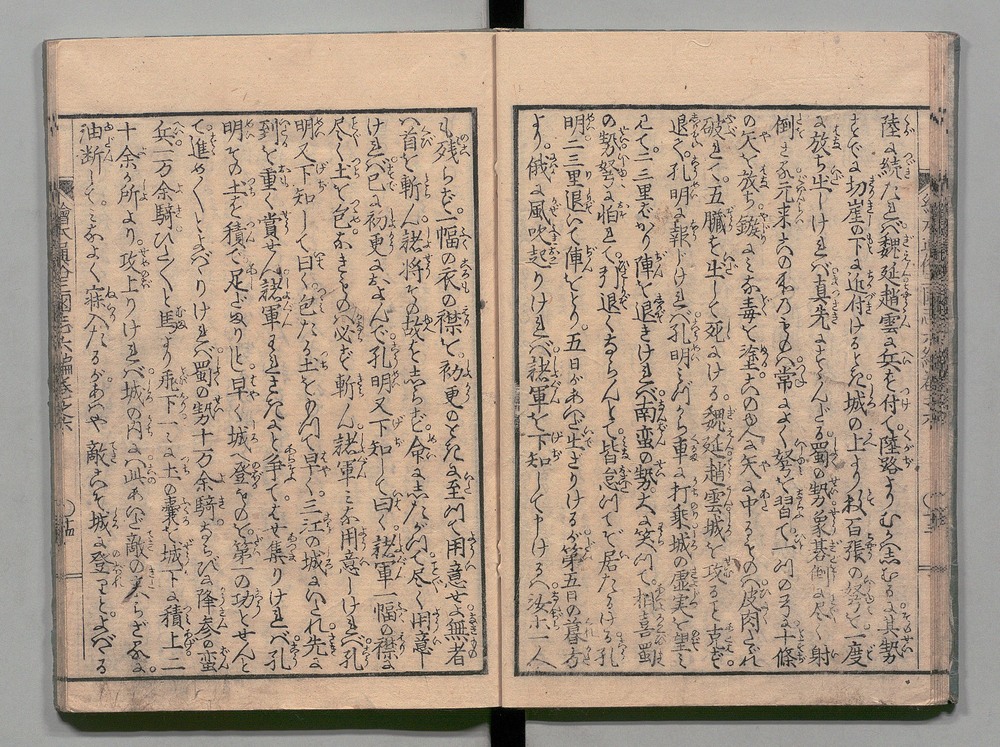 陸に続たれバ魏延趙雲に兵を付て陸路よりむかしむるに其勢
すでに切崖の下に近付けるとき城の上より数百張の弩を一度
に放ち出しけれバ真先にすゝんだる蜀の勢象棊倒に尽く射
倒さる元来此の国のものハ常によく弩を習て一つの弓に十條
の矢を放ち鏃にミな毒を塗たるゆへに矢に中るものハ皮肉たゞれ
破れて五臓を出して死にける魏延趙雲城を攻ること克ず
退て孔明に報じけれバ孔明ミづから車に打乗城の虚実を望ミ
見て二三里ばかり陣を退きけれバ南蛮の勢大に笑つて扨ハ蜀
の勢弩に怕れて引退くならんとて皆怠つてぞ居たりける孔
明二三里退いて陣をとり五日があひだ出ざりけるが第五日の暮方
より俄に風吹起りけれバ諸軍を下知して申けるハ汝等一人
も残らず一幅の衣の襟を初更のときに至つて用意せよ無者
ハ首を斬ん諸将その故をしらず命にしたがつて尽く用意し
けれバ已に初更におよんで孔明又下知して曰く諸軍一幅の襟に
尽く土を包めなきものハ必ず斬ん諸軍ミな用意しけれバ孔
明又下知して曰く包たる土をもつて早く三江の城にいたれ先に
到を重く賞せん諸軍われさきにと争てはせ集りけれバ孔
明その土を積で足だまりとし早く城へ登ものを第一の功とせんと
て進めやすゝめとよバりけれバ蜀の勢十万余騎ならびに降参の蛮
兵一万余騎ひしひしと馬より飛下一ミに土の嚢を城下に積上二
十余ヶ所より攻上りけれバ城の内にハ此あひだ敵の来らざるに
油断してミなよく寐入たるがあハや敵こそ城に登れとよバる